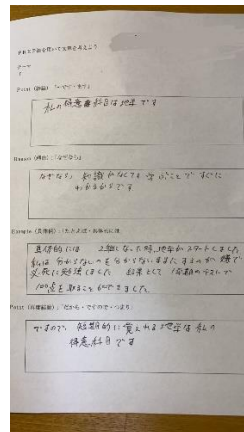 それぞれの語を使って文章を考えよう
テーマ
Point（結論）：「〜です・ます」
私の得意科目は地学です
Reason（理由）：「なぜなら」
なぜなら 知識がなくても 学ぶことで すぐに
わかるからです
Example（具体例）：「たとえば・具体的には」
具体的には 2年になった時、地学がスタートしました
私は 分からないのを分からないままにするのが 嫌で
必死に勉強しました 結果として 1学期のテストで
100点を取ることができました。
Point（結論）：「だから・ですので・つまり」
ですので、短期的に覚えれる地学は 私の
得意科目です